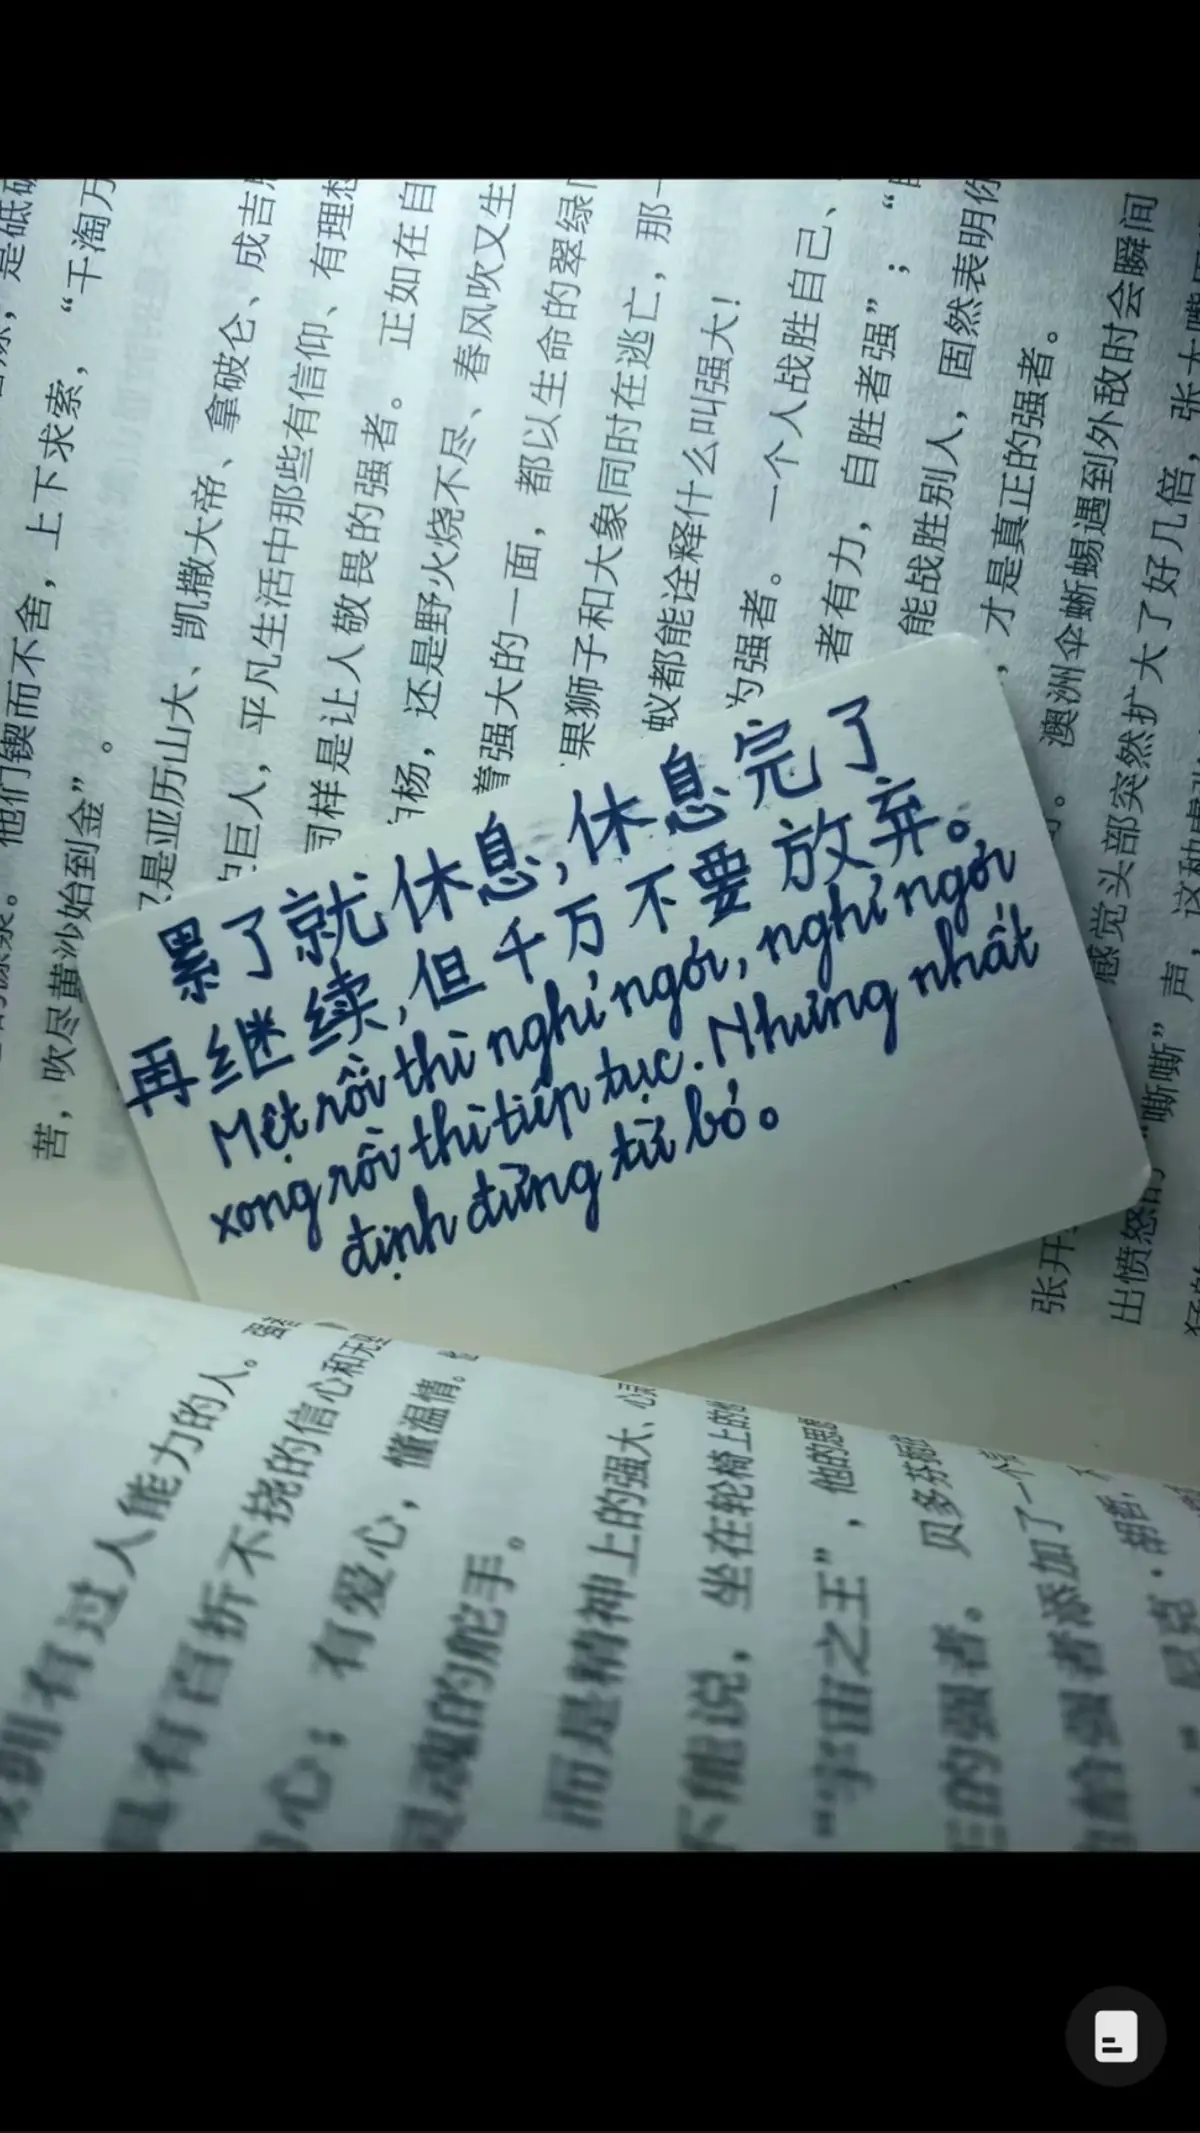 累了就休息,休息完了
再继续,但千万不要放弃。
Mệt rồi thì nghỉ ngơi, nghỉ ngơi
xong rồi thì tiếp tục. Nhưng nhất
định đừng từ bỏ。
是砥砺
他们锲而不舍，上下求索，“千淘万
苦，吹尽黄沙始到金”。
又是亚历山大、凯撒大帝、拿破仑、成吉思
巨人，平凡生活中那些有信仰、有理想
同样是让人敬畏的强者。正如在自
杨，还是野火烧不尽、春风吹又生
着强大的一面，都以生命的翠绿
果狮子和大象同时在逃亡，那一
蚁都能诠释什么叫强大！
为强者。一个人战胜自己、
者有力，自胜者强”；“
能战胜别人，固然表明你
，才是真正的强者。
澳洲伞蜥蜴遇到外敌时会瞬间
张开
感觉头部突然扩大了好几倍，张大嘴
出愤怒的“嘶嘶”声，这种虚张
拥有过人能力的人。
具有百折不挠的信心和无坚
心；有爱心，懂温情。
灵魂的舵手。
而是精神上的强大、心灵
不能说，坐在轮椅上的
“宇宙之王”，他的思想
正的强者。贝多芬扼住
给强者添加了一个
尼克·胡哲，